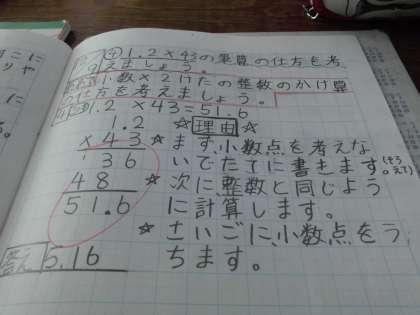 ④1.2×43の筆算の仕方を考
えましょう。
小数×2けたの整数のかけ算
の仕方を考えましょう。
1.2×43=51.6
1.2
×43
136
48
51.6
答え 5.16
☆理由☆
☆まず、小数点を考えな
いでたてに書きます。(そろえて)
☆次に整数と同じよう
に計算します。
☆さいごに、小数点をう
ちます。